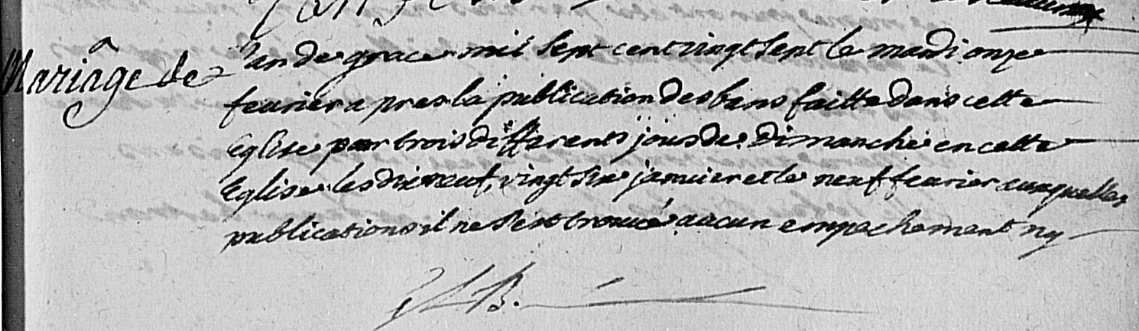 Mariage de
L'an de grace mil sept cent vingt sept le mardi onze
feurier apres la publication des bans faitte dans cette
Eglise par trois differents jours de Dimanche en cette
Eglise les dixneuf, vingt six januier et le neuf feurier auxquelles
publications il ne s'est trouué aucun empechement ny